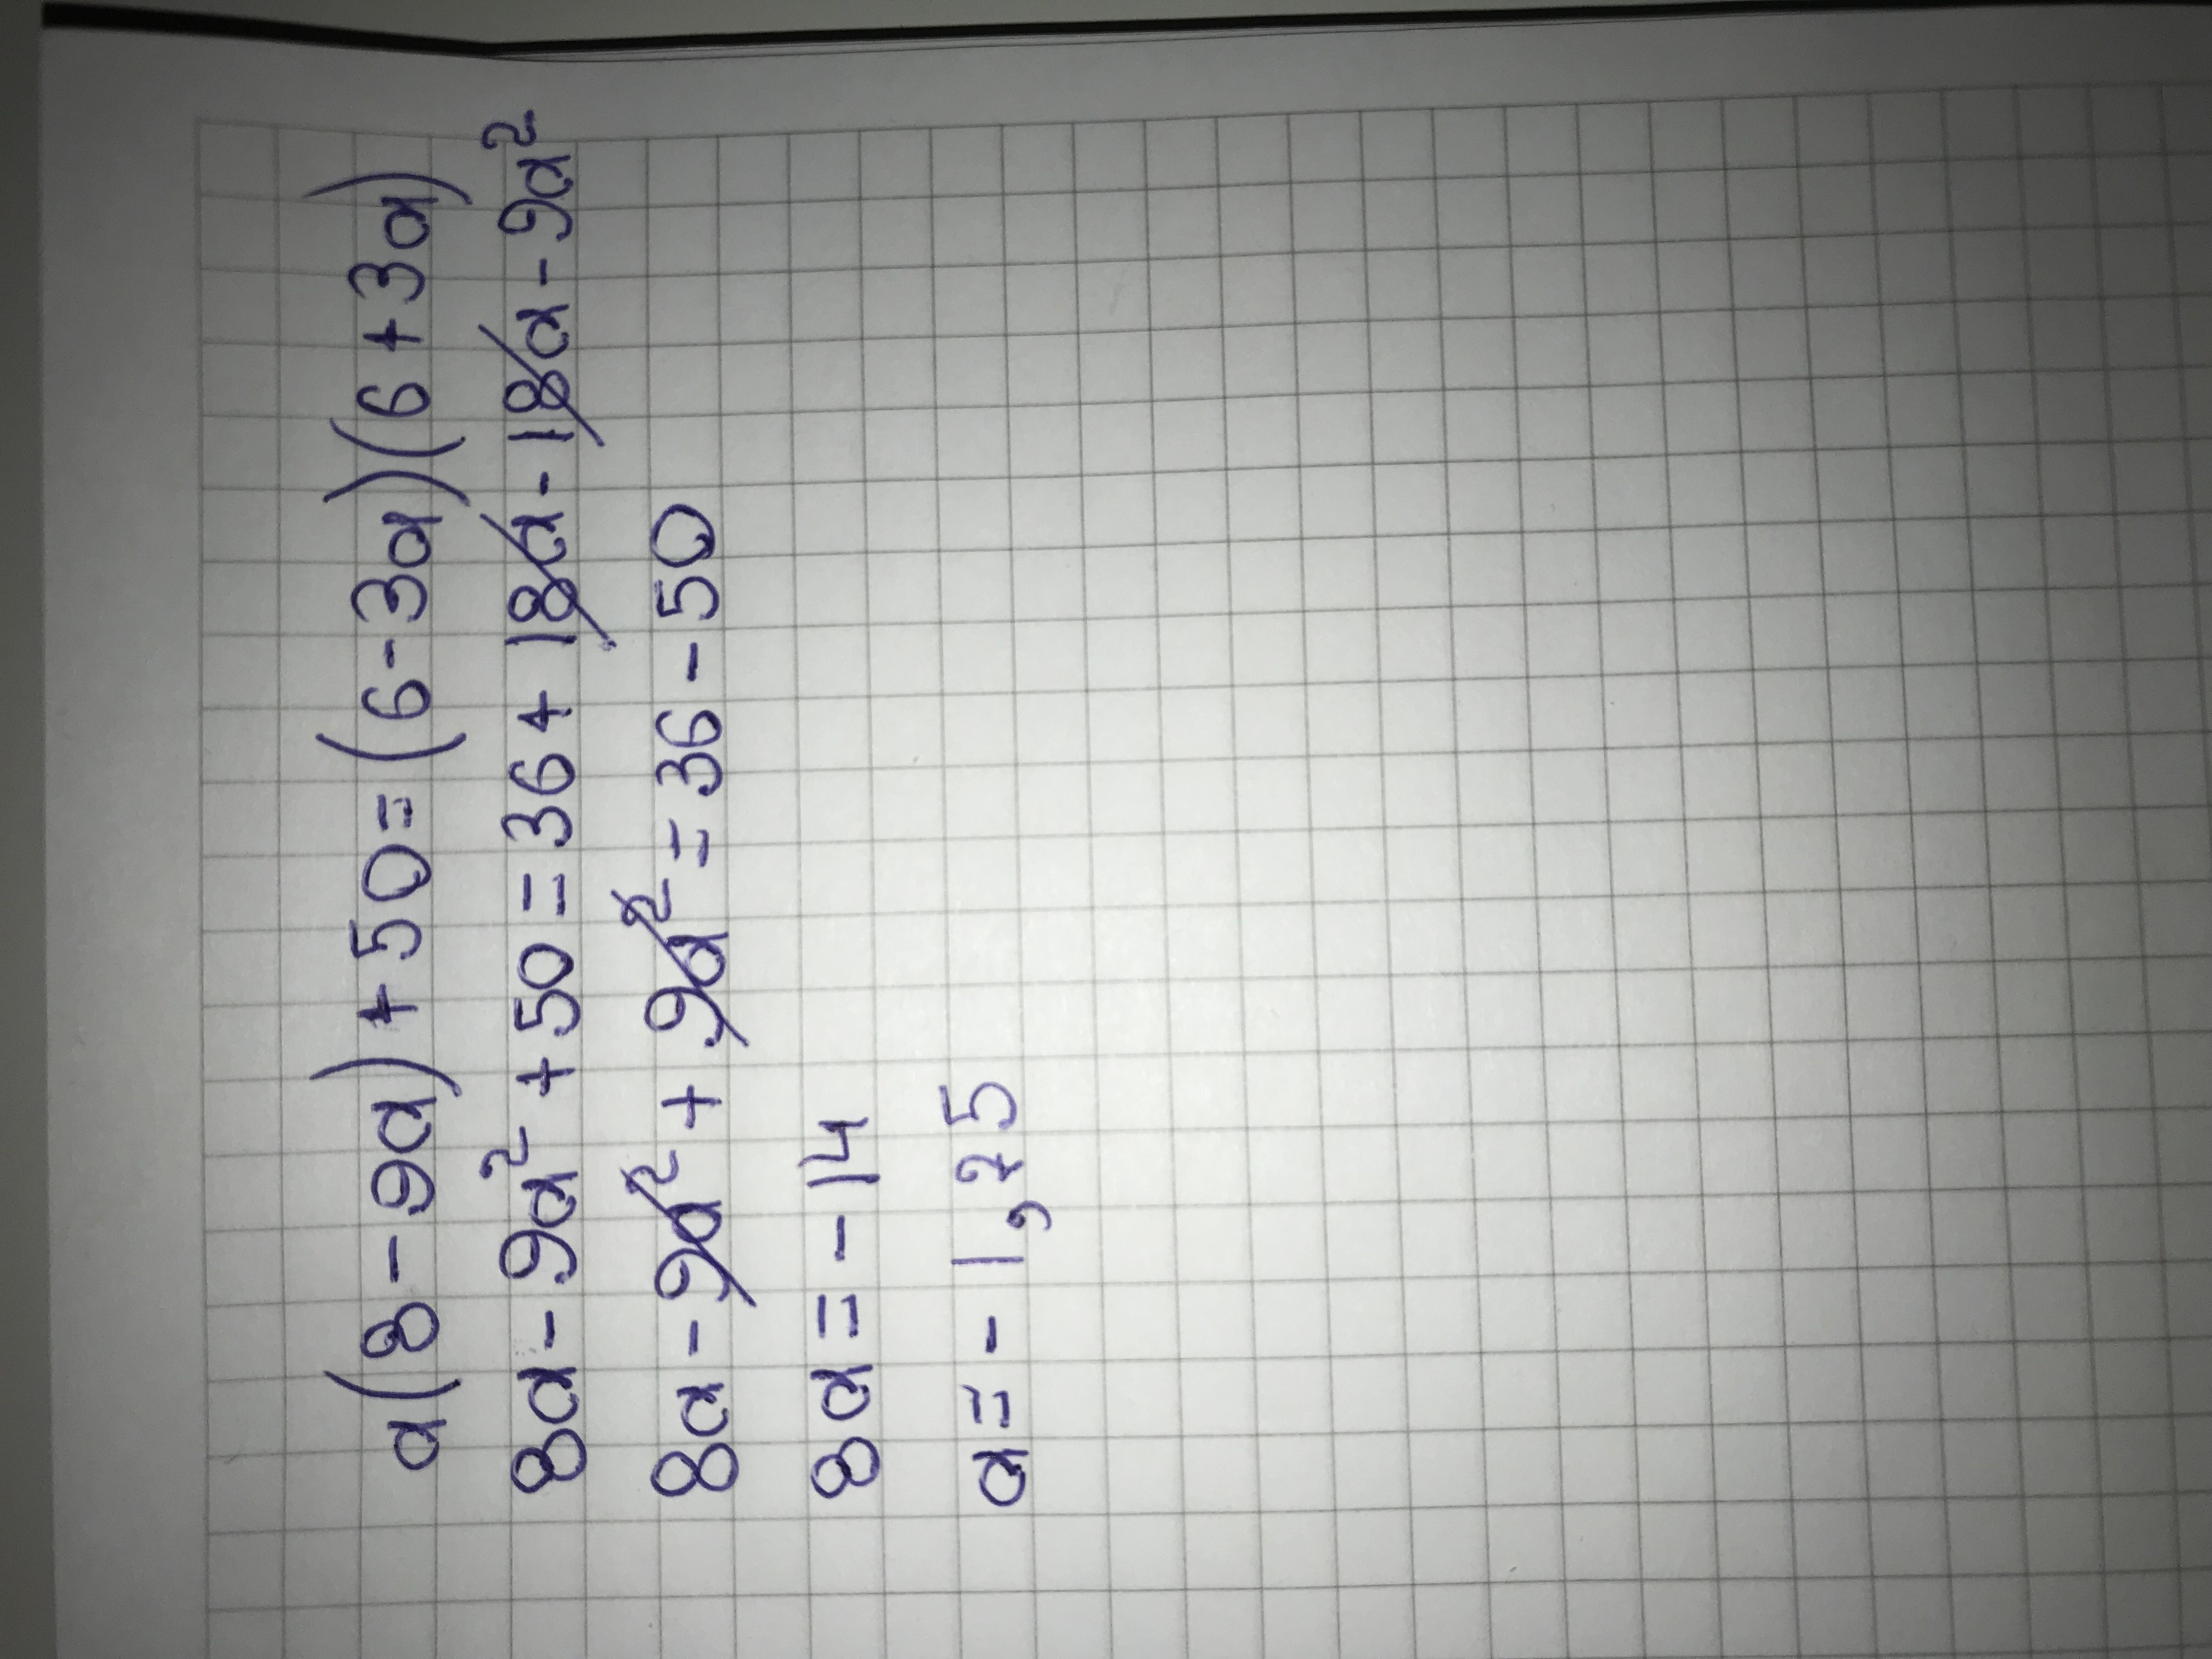 a(8-9a)+50=(6-3a)(6+3a)
8a-9a²+50=36+18a-18a-9a²
8a-9a²+9a²=36-50
8a=-14
a=-1,75